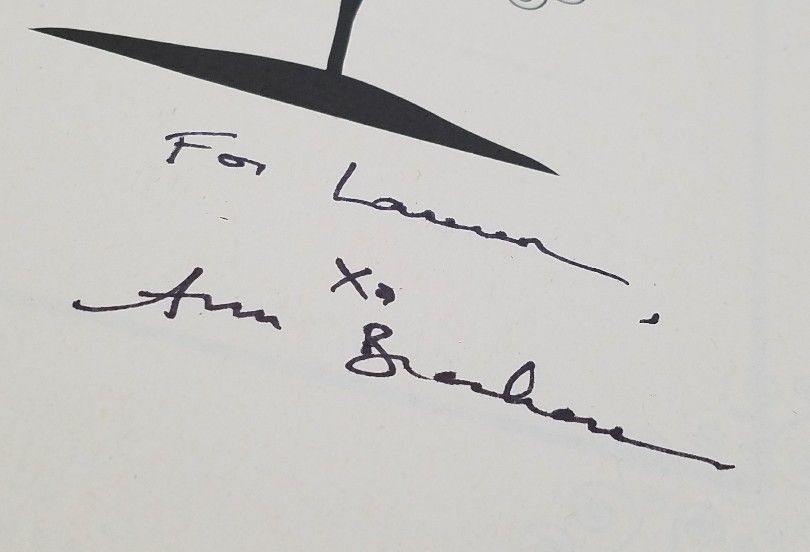 For Lauren,
xo
Ann Brashares